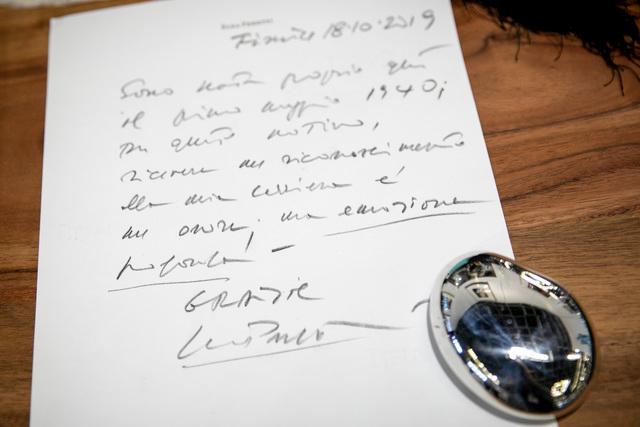 Firenze 18.10.2019
Sono nata proprio qui
il primo maggio 1940;
per questo motivo,
ricevere un riconoscimento
alla mia carriera è
un onore, una emozione
profonda! -
GRAZIE